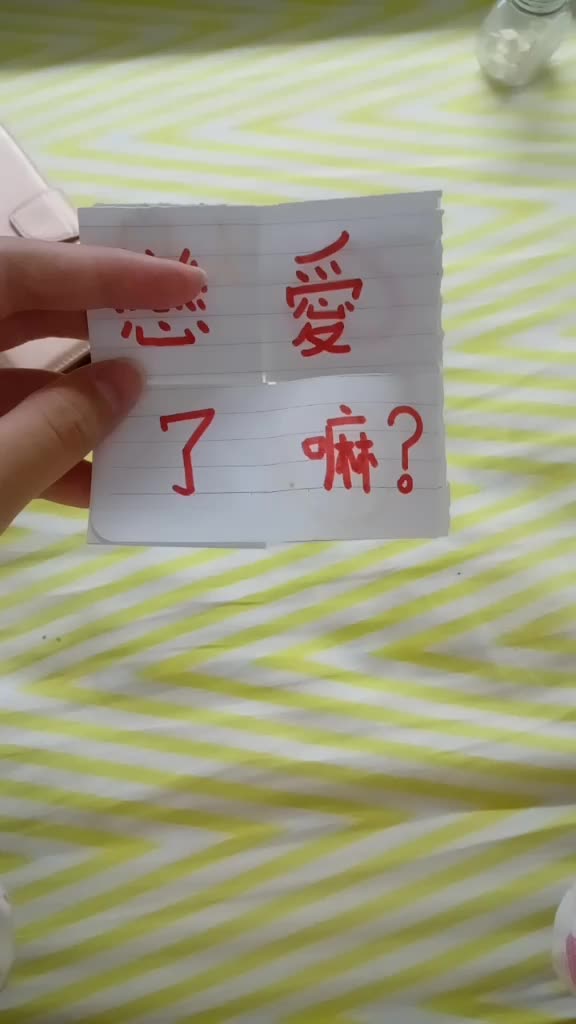 戀愛
了嘛?